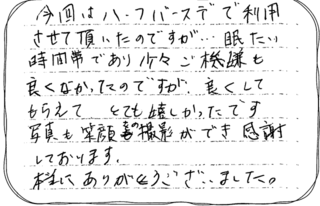 今回はハーフバースデで利用
させて頂いたのですが…眠たい
時間帯であり少々ご機嫌も
良くなかったのですが、良くして
もらえて とても嬉しかったです
写真も笑顔の撮影ができ 感謝
しております。
本当にありがとうございました。